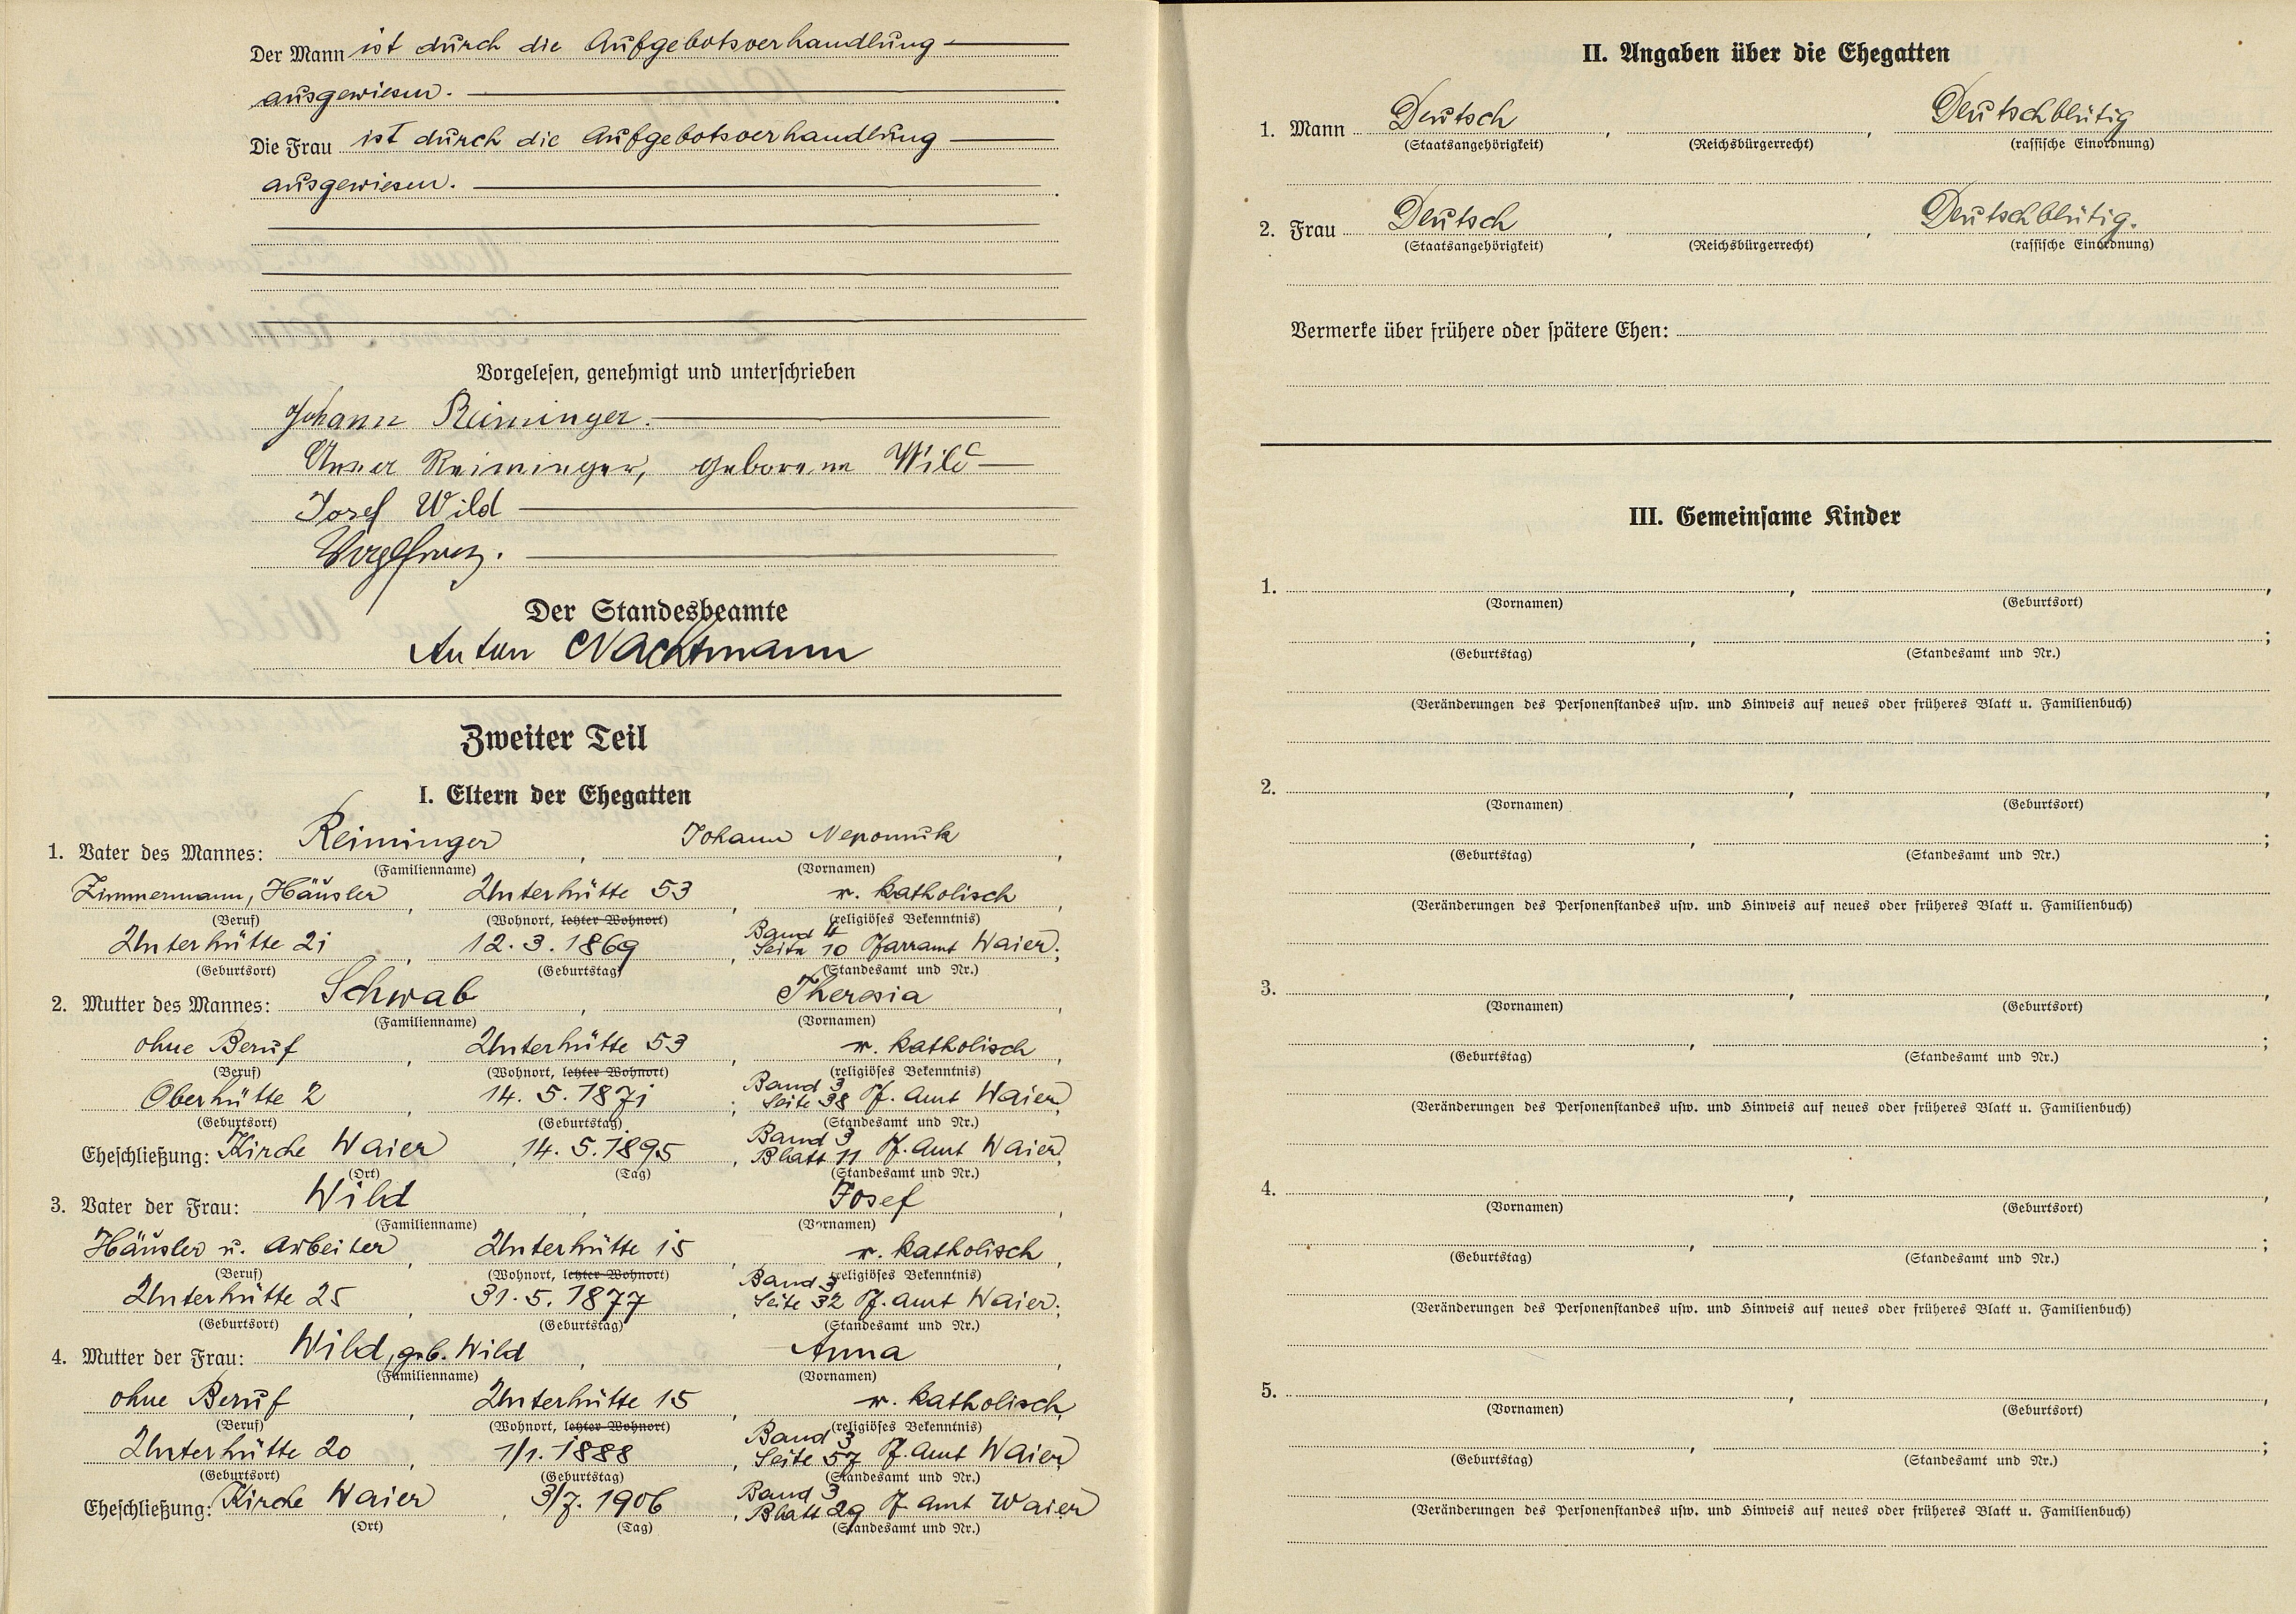 Der Mann ist durch die Aufgebotsverhandlung
ausgewiesen.
Die Frau ist durch die Aufgebotsverhandlung
ausgewiesen.
Vorgelesen, genehmigt und unterschrieben
Johann Reiminger.
Anna Reiminger, geborene Wild
Josef Wild
Der Standesbeamte
Anton Nachtmann
Zweiter Teil
I. Eltern der Ehegatten
1. Vater des Mannes: Reiminger, Johann Nepomuk,
(Familienname) (Vornamen)
Zimmermann, Häusler, Unterhütte 53, r. katholisch,
(Beruf) (Wohnort, letzter Wohnort) (religiöses Bekenntnis)
Unterhütte 21, 12. 3. 1869, Band 4 Seite 10 Pfarramt Waier;
(Geburtsort) (Geburtstag) (Standesamt und Nr.)
2. Mutter des Mannes: Schwab, Theresia,
(Familienname) (Vornamen)
ohne Beruf, Unterhütte 53, r. katholisch,
(Beruf) (Wohnort, letzter Wohnort) (religiöses Bekenntnis)
Oberhütte 2, 14. 5. 1871; Band 3 Seite 38 Pf. Amt Waier,
(Geburtsort) (Geburtstag) (Standesamt und Nr.)
Eheschließung: Kirche Waier, 14. 5. 1895, Band 3 Blatt 11 Pf. Amt Waier;
(Ort) (Tag) (Standesamt und Nr.)
3. Vater der Frau: Wild, Josef,
(Familienname) (Vornamen)
Häusler u. Arbeiter, Unterhütte 15, r. katholisch,
(Beruf) (Wohnort, letzter Wohnort) (religiöses Bekenntnis)
Unterhütte 25, 31. 5. 1877, Band 3 Seite 32 Pf. Amt Waier;
(Geburtsort) (Geburtstag) (Standesamt und Nr.)
4. Mutter der Frau: Wild, geb. Wild, Anna,
(Familienname) (Vornamen)
ohne Beruf, Unterhütte 15, r. katholisch,
(Beruf) (Wohnort, letzter Wohnort) (religiöses Bekenntnis)
Unterhütte 20, 1/1. 1888, Band 3 Seite 57 Pf. Amt Waier,
(Geburtsort) (Geburtstag) (Standesamt und Nr.)
Eheschließung: Kirche Waier, 3/7. 1906, Band 3 Blatt 29 Pf. Amt Waier
(Ort) (Tag) (Standesamt und Nr.)
II. Angaben über die Ehegatten
1. Mann Deutsch, , Deutschblütig
(Staatsangehörigkeit) (Reichsbürgerrecht) (rassische Einordnung)
2. Frau Deutsch, , Deutschblütig.
(Staatsangehörigkeit) (Reichsbürgerrecht) (rassische Einordnung)
Vermerke über frühere oder spätere Ehen:
III. Gemeinsame Kinder
1. , ,
(Vornamen) (Geburtsort)
, ;
(Geburtstag) (Standesamt und Nr.)
(Veränderungen des Personenstandes usw. und Hinweis auf neues oder früheres Blatt u. Familienbuch)
2. , ,
(Vornamen) (Geburtsort)
, ;
(Geburtstag) (Standesamt und Nr.)
(Veränderungen des Personenstandes usw. und Hinweis auf neues oder früheres Blatt u. Familienbuch)
3. , ,
(Vornamen) (Geburtsort)
, ;
(Geburtstag) (Standesamt und Nr.)
(Veränderungen des Personenstandes usw. und Hinweis auf neues oder früheres Blatt u. Familienbuch)
4. , ,
(Vornamen) (Geburtsort)
, ;
(Geburtstag) (Standesamt und Nr.)
(Veränderungen des Personenstandes usw. und Hinweis auf neues oder früheres Blatt u. Familienbuch)
5. , ,
(Vornamen) (Geburtsort)
, ;
(Geburtstag) (Standesamt und Nr.)
(Veränderungen des Personenstandes usw. und Hinweis auf neues oder früheres Blatt u. Familienbuch)